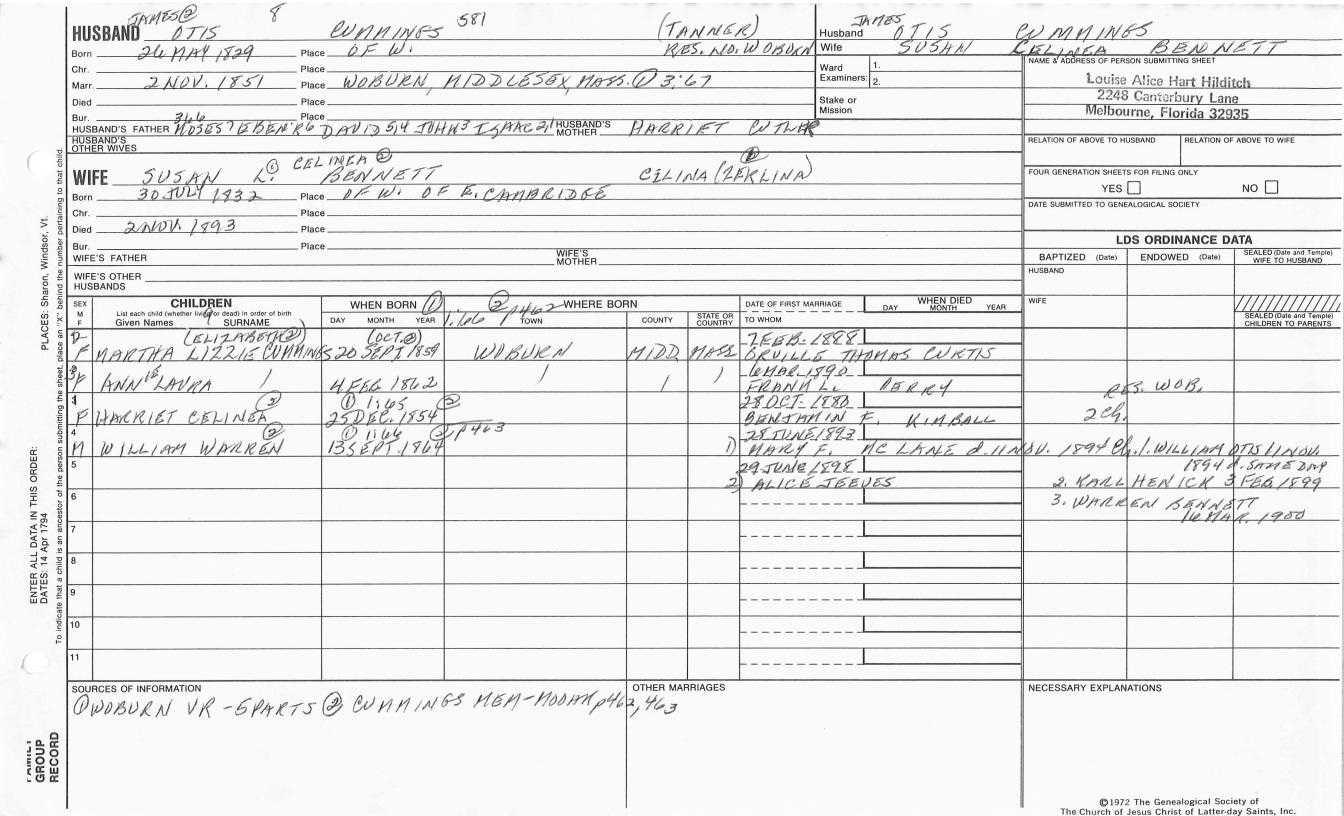 JAMES② 8 581
HUSBAND OTIS CUMMINGS (TANNER)
Born 26 MAY 1829 Place OF W. RES. NO. WOBURN
Chr. Place
Marr. 2 NOV. 1851 Place WOBURN, MIDDLESEX, MASS. ① 3:67
Died Place
Bur. Place
366
HUSBAND'S FATHER MOSES7 EBEN'R6 DAVID5,4 JOHN3 ISAAC2,1 HUSBAND'S MOTHER HARRIET CUTLER
HUSBAND'S OTHER WIVES
CELINEA ② ②
WIFE SUSAN L.① BENNETT CELINA (ZERLINA)
Born 30 JULY 1832 Place OF W. OF E. CAMBRIDGE
Chr. Place
Died 2 NOV. 1893 Place
Bur. Place
WIFE'S FATHER WIFE'S MOTHER
WIFE'S OTHER HUSBANDS
JAMES
Husband OTIS CUMMINGS
Wife SUSAN CELINEA BENNETT
Ward Examiners: 1.
2.
Stake or Mission
NAME & ADDRESS OF PERSON SUBMITTING SHEET
Louise Alice Hart Hilditch
2248 Canterbury Lane
Melbourne, Florida 32935
RELATION OF ABOVE TO HUSBAND RELATION OF ABOVE TO WIFE
FOUR GENERATION SHEETS FOR FILING ONLY
YES NO
DATE SUBMITTED TO GENEALOGICAL SOCIETY
LDS ORDINANCE DATA
BAPTIZED (Date) ENDOWED (Date) SEALED (Date and Temple) WIFE TO HUSBAND
HUSBAND
WIFE
SEALED (Date and Temple) CHILDREN TO PARENTS
SEX M F
CHILDREN
List each child (whether living or dead) in order of birth
Given Names SURNAME
WHEN BORN ①
DAY MONTH YEAR
1:66 ② p462
WHERE BORN
TOWN COUNTY STATE OR COUNTRY
DATE OF FIRST MARRIAGE
TO WHOM
WHEN DIED
DAY MONTH YEAR
2 (ELIZABETH②) (OCT.②) 7 FEB. 1888
F MARTHA LIZZIE CUMMINGS 20 SEPT. 1859 WOBURN MIDD MASS ORVILLE THOMAS CURTIS
3 6 MAR. 1890
F ANN LAURA 4 FEB 1862 FRANK L. PERRY RES. WOB.
1 ② ① 1:65 ② 28 OCT. 1880
F HARRIET CELINEA 25 DEC. 1854 BENJAMIN F. KIMBALL 2 Ch.
4 ② ① 1:66 ② p463 28 JUNE 1893
M WILLIAM WARREN 13 SEPT. 1864 1) MARY F. MC LANE d. 11 NOV. 1894 Ch. 1. WILLIAM OTIS 11 NOV.
5 29 JUNE 1898 1894 d. SAME DAY
2) ALICE JEEVES 2. KARL HENICK 3 FEB. 1899
6 3. WARREN BENNETT
16 MAR. 1900
7
8
9
10
11
SOURCES OF INFORMATION
① WOBURN VR - 5 PARTS ② CUMMINGS MEM-MOOAR p462, 463
OTHER MARRIAGES
NECESSARY EXPLANATIONS
©1972 The Genealogical Society of
The Church of Jesus Christ of Latter-day Saints, Inc.
PLACES: Sharon, Windsor, Vt.
ENTER ALL DATA IN THIS ORDER:
DATES: 14 Apr 1794
To indicate that a child is an ancestor of the person submitting the sheet, place an "X" behind the number pertaining to that child.
FAMILY GROUP RECORD